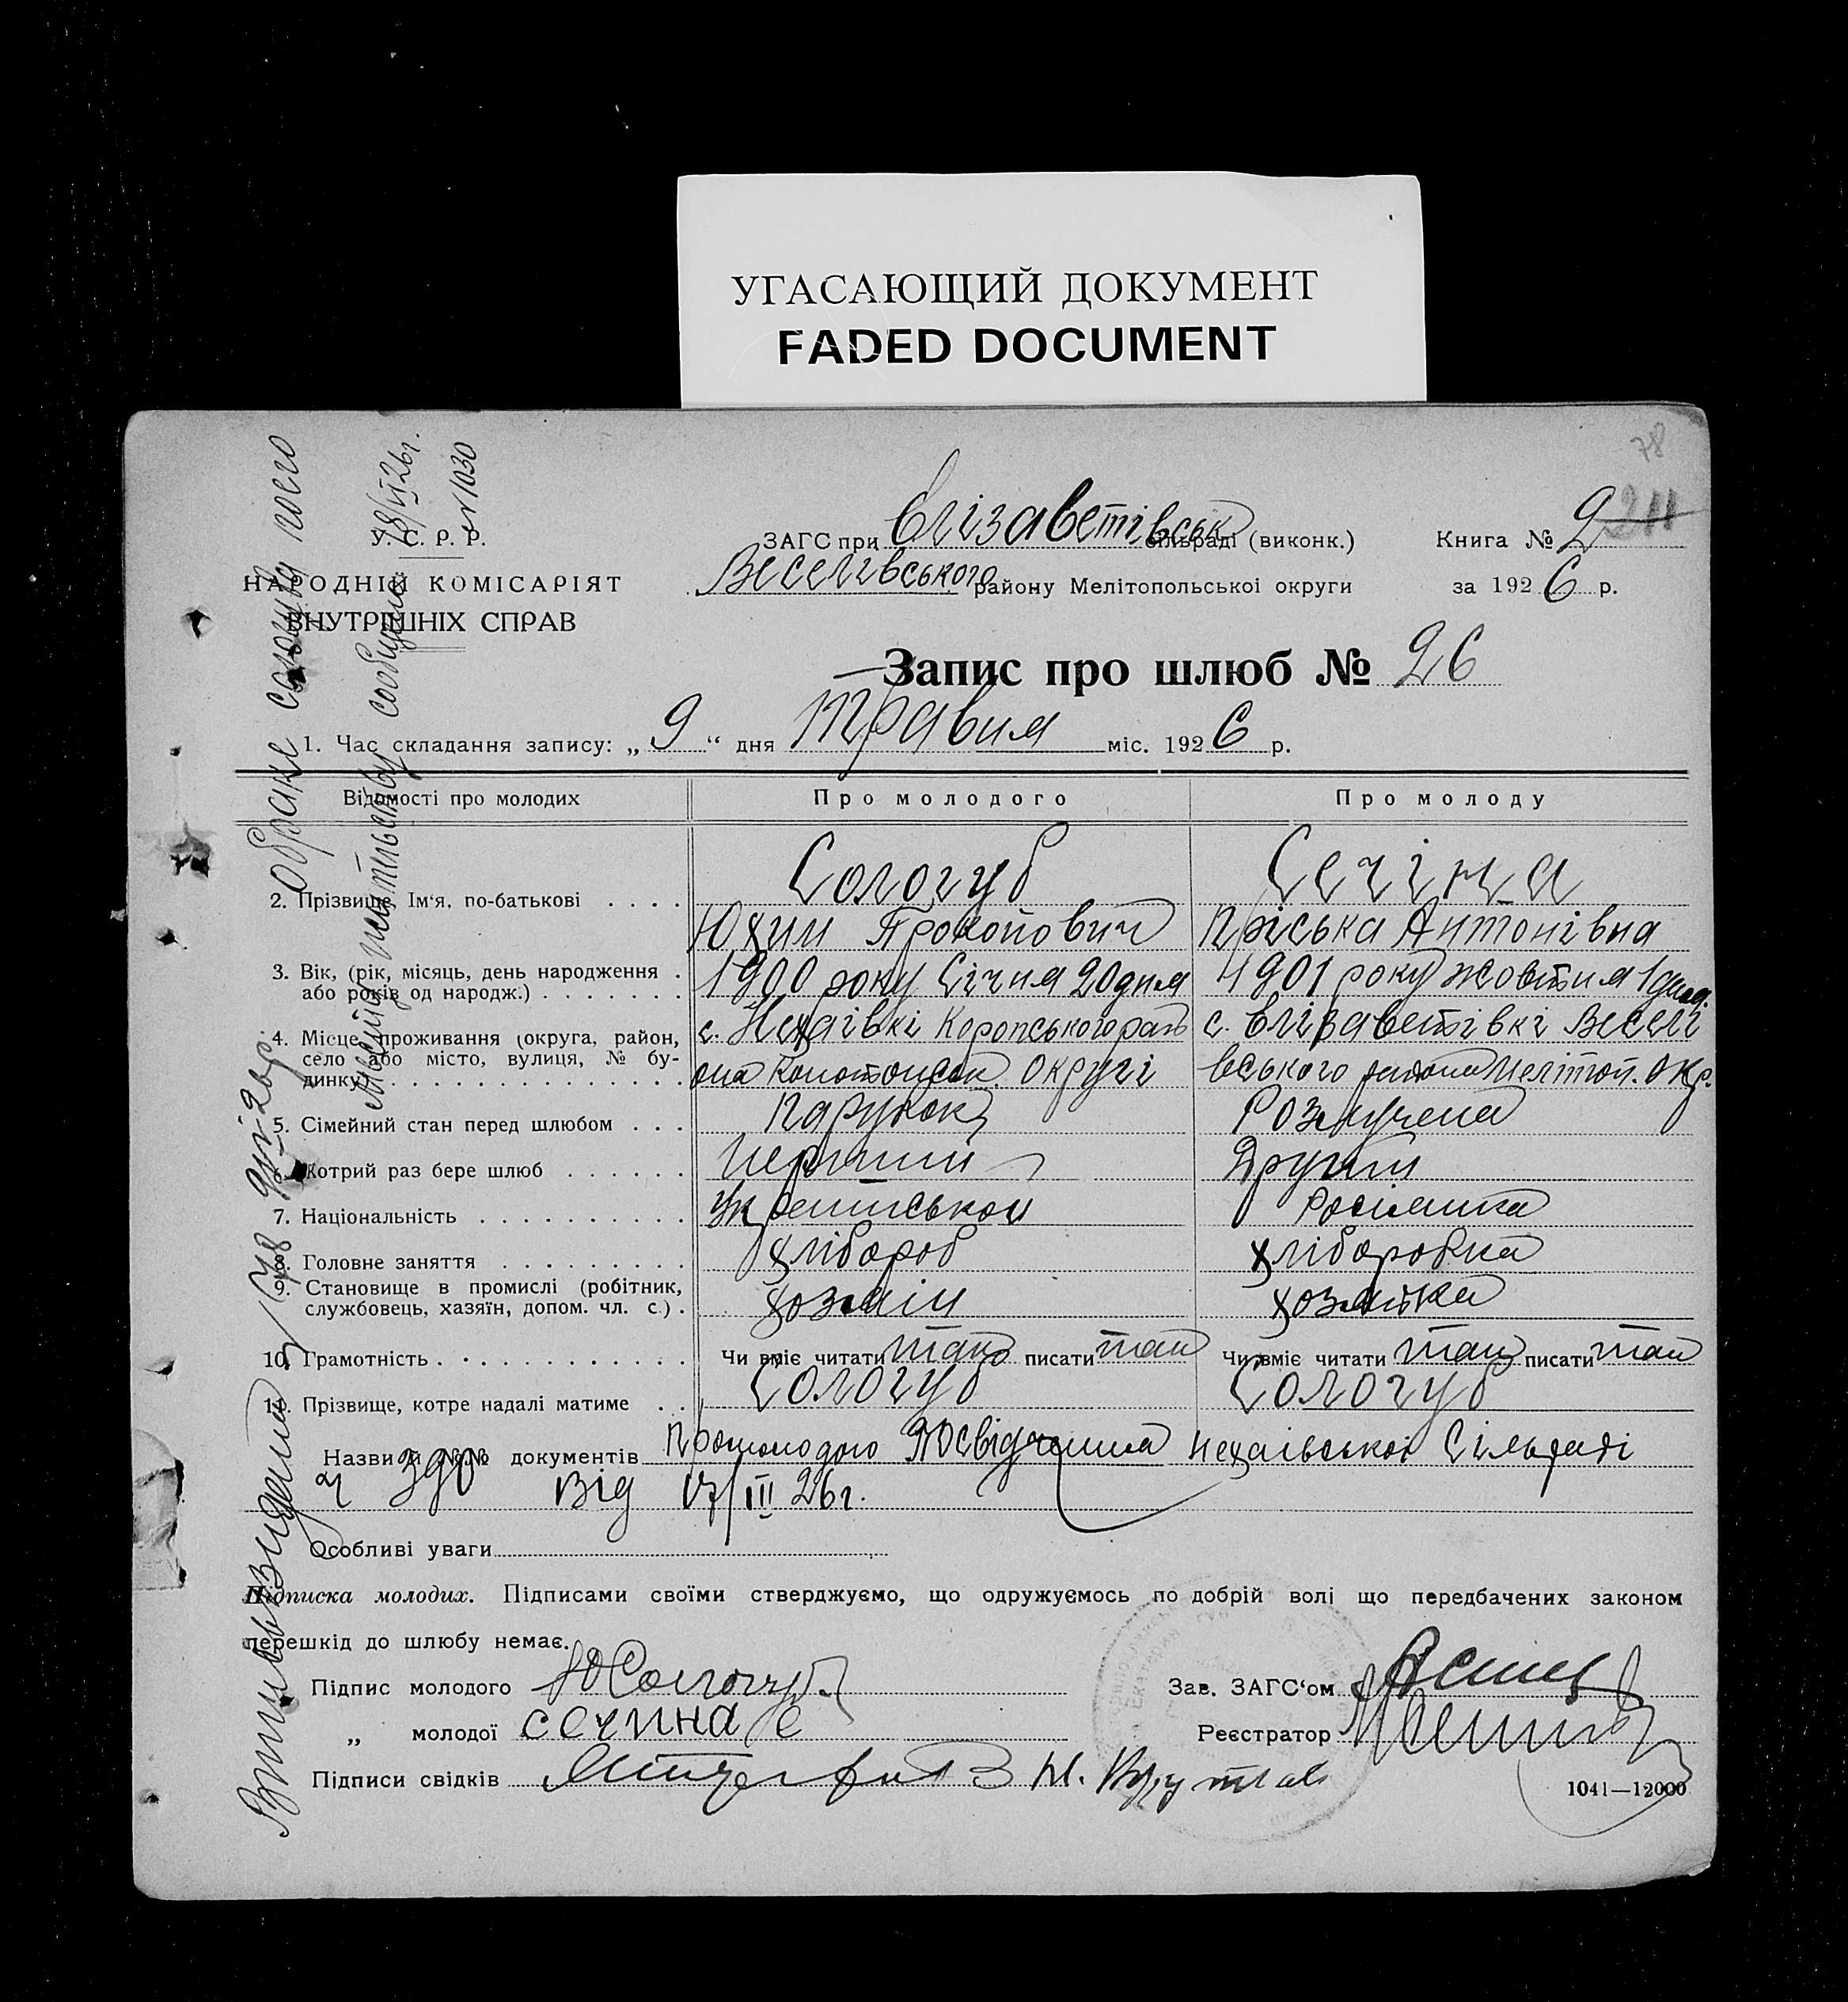 УГАСАЮЩИЙ ДОКУМЕНТ
FADED DOCUMENT
78
211
У. С. Р. Р.
НАРОДНІЙ КОМІСАРІЯТ
ВНУТРІШНІХ СПРАВ
ЗАГС при Єлізаветівськ сільраді (виконк.)
Книга № 2
Веселівського району Мелітопольської округи
за 1926 р.
Запис про шлюб № 26
1. Час складання запису: „9“ дня Травня міс. 1926 р.
Відомості про молодих
Про молодого
Про молоду
2. Прізвище, Ім'я, по-батькові . . . .
Сологуб
Юхим Прокопович
Сечіна
Пріська Антонівна
3. Вік, (рік, місяць, день народження .
або років од народж.) . . . . . . .
1900 року Січня 20 дня
1901 року жовтня 1 дня.
4. Місце проживання (округа, район,
село або місто, вулиця, № бу-
динку) . . . . . . . . . . . . . .
с. Нехаівкі Коропського рай
она Конотопськ. округі
с. Єлізаветівкі Веселі
вського района Мелітоп. окр.
5. Сімейний стан перед шлюбом . . .
парубок
Розлучена
6. Котрий раз бере шлюб . . . . . .
перший
Другий
7. Національність . . . . . . . . . .
Росіянка
8. Головне заняття . . . . . . . . .
хлібороб
хліборобка
9. Становище в промислі (робітник,
службовець, хазяїн, допом. чл. с.) .
хозяін
хозяйка
10. Грамотність . . . . . . . . . . . .
Чи вміє читати так писати так
Чи вміє читати так писати так
11. Прізвище, котре надалі матиме . .
Сологуб
Сологуб
Назви й №№ документів Про молодого Посвідчення Нехаівської Сільраді
ч 390 від 17/III 26 г.
Особливі уваги
Підписка молодих. Підписами своїми стверджуємо, що одружуємось по добрій волі що передбачених законом
перешкід до шлюбу немає.
Підпис молодого ЮСологуб
Зав. ЗАГС'ом
„ молодої сечина е
Реєстратор
Підписи свідків
1041—12000
о браке
сообщено
№ 1030